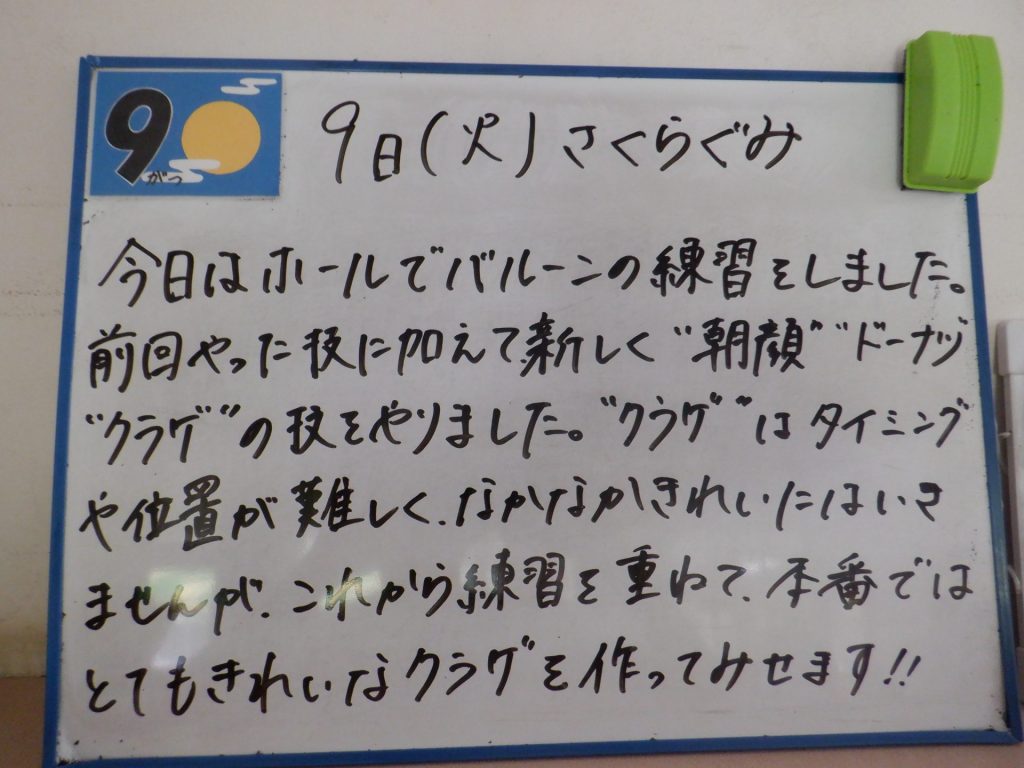 9
がつ
9日(火)さくらぐみ
今日はホールでバルーンの練習をしました。
前回やった技に加えて新しく"朝顔""ドーナツ"
"クラゲ"の技をやりました。"クラゲ"はタイミング
や位置が難しく、なかなかきれいにはいき
ませんが、これから練習を重ねて、本番では
とてもきれいなクラゲを作ってみせます!!